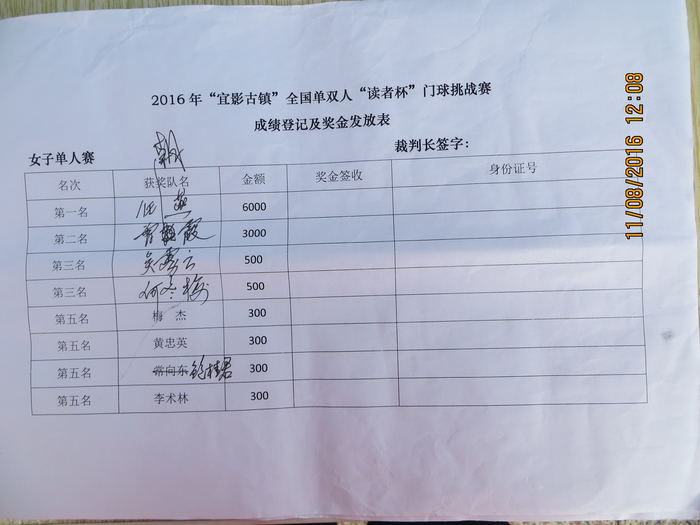 2016年“宜影古镇”全国单双人“读者杯”门球挑战赛
成绩登记及奖金发放表
女子单人赛 裁判长签字：
名次 获奖队名 金额 奖金签收 身份证号
第一名 6000
第二名 3000
第三名 吴秀云 500
第三名 何冬梅 500
第五名 梅 杰 300
第五名 黄忠英 300
第五名 常向东 300
第五名 李术林 300
11/08/2016 12:08